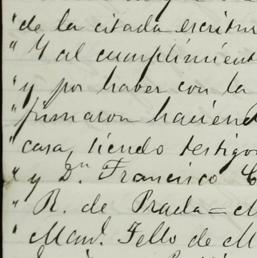 "de la citada escritur
"Y al cumplimient
"y por haber con la
"firmaron haciend
casa, siendo testigo
"y Dn Francisco C
"R. de Prada = M
"Manl. Tello de M